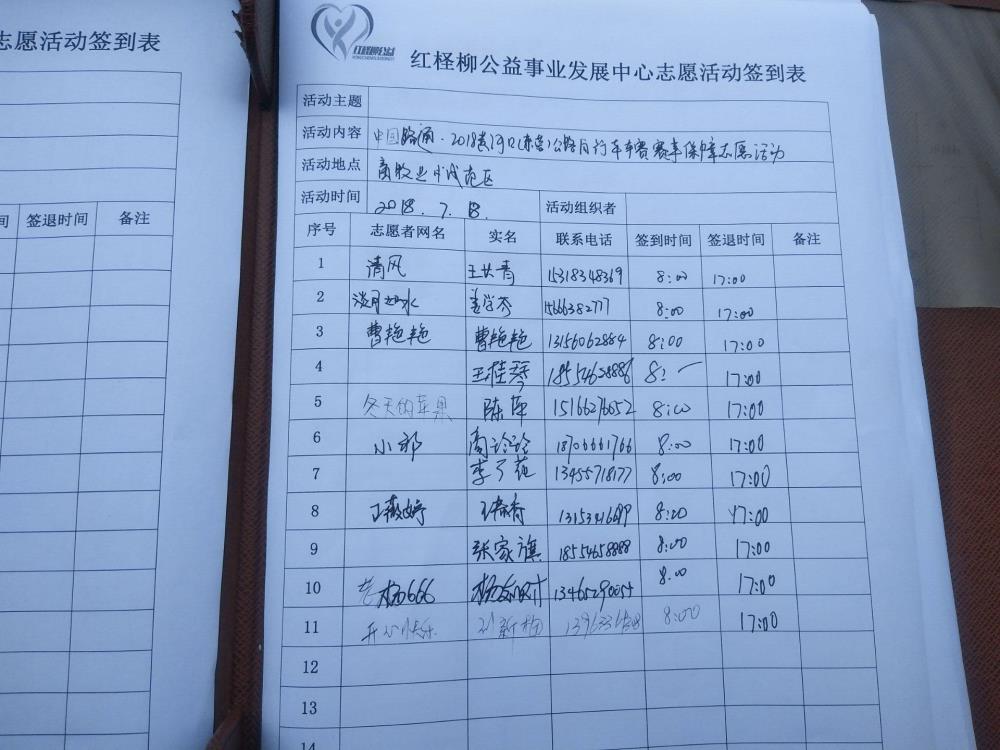 志愿活动签到表
签退时间 备注
红柽柳公益事业发展中心志愿活动签到表
活动主题
活动内容 中国路通·2018黄河口(东营)公路自行车赛赛事保障志愿活动
活动地点 区
活动时间 2018.7.18. 活动组织者
序号 志愿者网名 实名 联系电话 签到时间 签退时间 备注
1 清风 王长青 15318348369 8:00 17:00
2 淡月如水 15666382777 8:00 17:00
3 曹艳艳 曹艳艳 13156062884 8:00 17:00
4 王桂琴 18554628886 8: 17:00
5 冬天的苹果 陈萍 15166276052 8:00 17:00
6 小祁 周玲玲 18706661766 8:00 17:00
7 13455718177 8:00 17:00
8 王薇婷 8:00 17:00
9 张家旗 18554658888 8:00 17:00
10 老杨666 13465290054 8:00 17:00
11 开心快乐 8:00 17:00
12
13
14